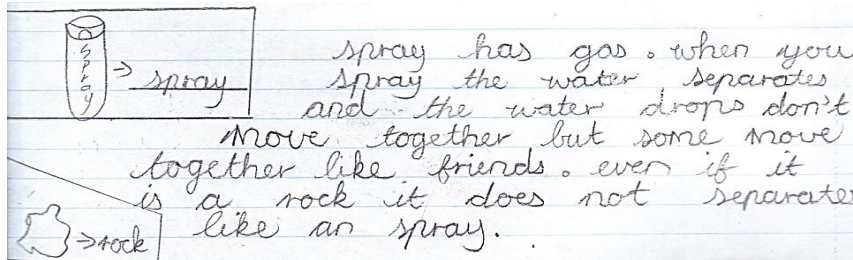 spray
spray
spray has gas. when you
spray the water separates
and the water drops don't
move together but some move
together like friends. even if it
is a rock it does not separates
like an spray.
rock